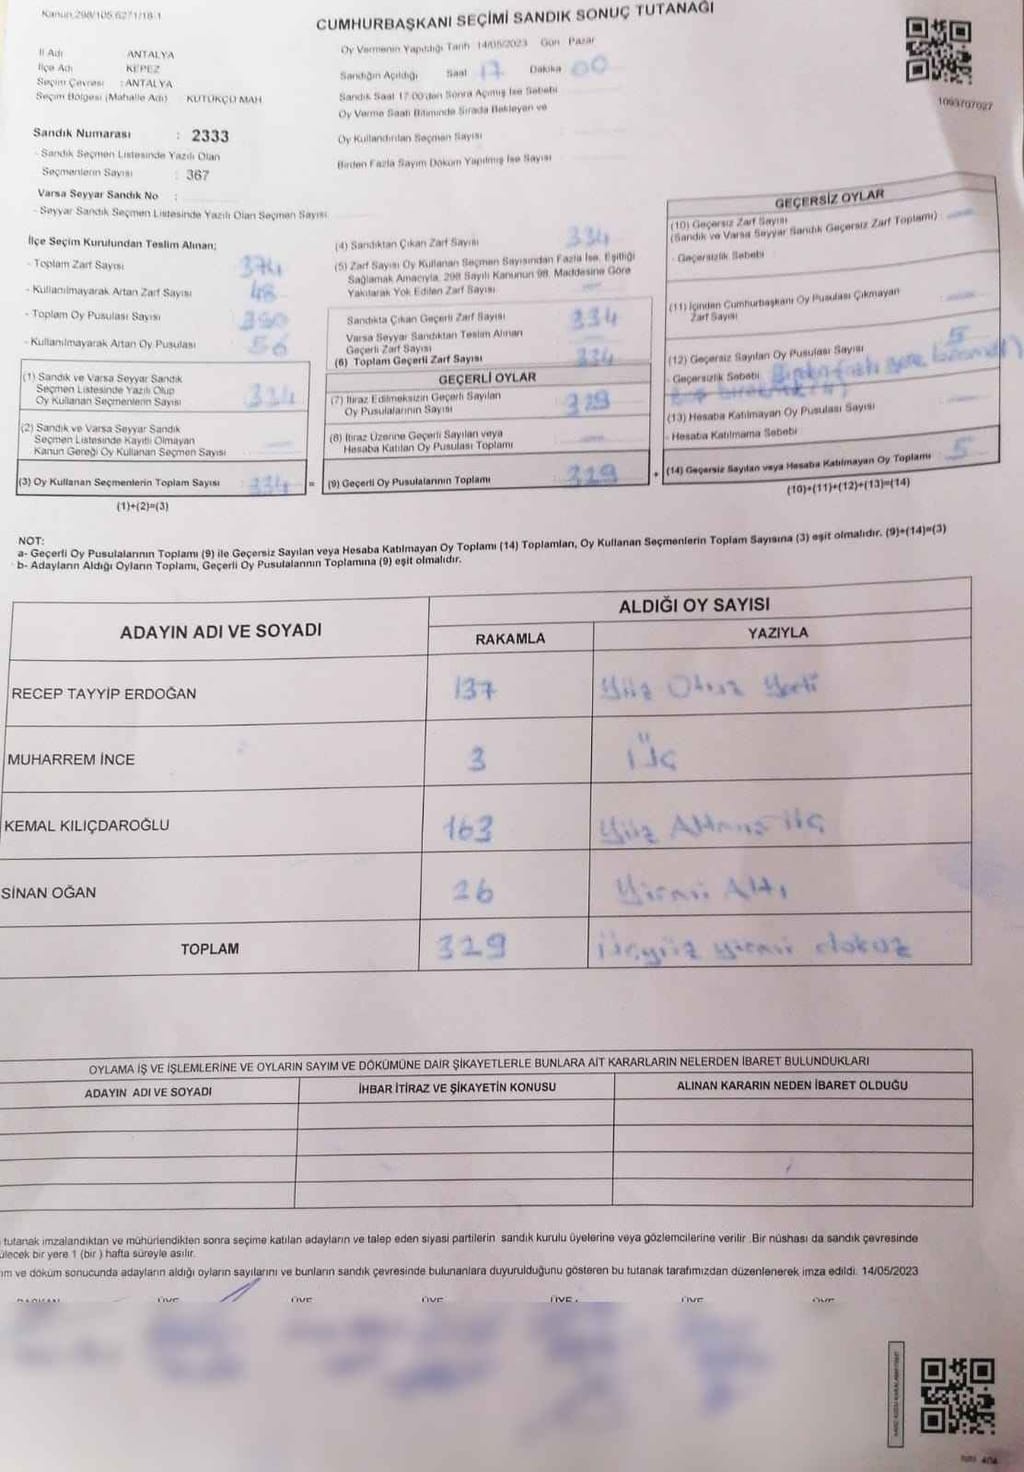 Kanun 298/105,6271/18-1
CUMHURBAŞKANI SEÇİMİ SANDIK SONUÇ TUTANAĞI
İl Adı ANTALYA
İlçe Adı KEPEZ
Seçim Çevresi : ANTALYA
Seçim Bölgesi (Mahalle Adı) KÜTÜKÇÜ MAH
Oy Vermenin Yapıldığı Tarih 14/05/2023 Gün Pazar
Sandığın Açıldığı Saat 17 Dakika 00
Sandık Saat 17:00'den Sonra Açılmış İse Sebebi
Oy Verme Saati Bitiminde Sırada Bekleyen ve
Oy Kullandırılan Seçmen Sayısı
Birden Fazla Sayım Döküm Yapılmış İse Sayısı
1093707027
Sandık Numarası : 2333
- Sandık Seçmen Listesinde Yazılı Olan
Seçmenlerin Sayısı : 367
Varsa Seyyar Sandık No :
- Seyyar Sandık Seçmen Listesinde Yazılı Olan Seçmen Sayısı
İlçe Seçim Kurulundan Teslim Alınan;
- Toplam Zarf Sayısı 374
- Kullanılmayarak Artan Zarf Sayısı 48
- Toplam Oy Pusulası Sayısı 390
- Kullanılmayarak Artan Oy Pusulası 56
(1) Sandık ve Varsa Seyyar Sandık
Seçmen Listesinde Yazılı Olup
Oy Kullanan Seçmenlerin Sayısı 334
(2) Sandık ve Varsa Seyyar Sandık
Seçmen Listesinde Kayıtlı Olmayan
Kanun Gereği Oy Kullanan Seçmen Sayısı
(3) Oy Kullanan Seçmenlerin Toplam Sayısı : 334 =
(1)+(2)=(3)
(4) Sandıktan Çıkan Zarf Sayısı 334
(5) Zarf Sayısı Oy Kullanan Seçmen Sayısından Fazla İse, Eşitliği
Sağlamak Amacıyla, 298 Sayılı Kanunun 98. Maddesine Göre
Yakılarak Yok Edilen Zarf Sayısı
Sandıkta Çıkan Geçerli Zarf Sayısı 334
Varsa Seyyar Sandıktan Teslim Alınan
Geçerli Zarf Sayısı
(6) Toplam Geçerli Zarf Sayısı 334
GEÇERLİ OYLAR
(7) İtiraz Edilmeksizin Geçerli Sayılan
Oy Pusulalarının Sayısı 329
(8) İtiraz Üzerine Geçerli Sayılan veya
Hesaba Katılan Oy Pusulası Toplamı
(9) Geçerli Oy Pusulalarının Toplamı 329 +
GEÇERSİZ OYLAR
(10) Geçersiz Zarf Sayısı
(Sandık ve Varsa Seyyar Sandık Geçersiz Zarf Toplamı)
- Geçersizlik Sebebi
(11) İçinden Cumhurbaşkanı Oy Pusulası Çıkmayan
Zarf Sayısı
(12) Geçersiz Sayılan Oy Pusulası Sayısı 5
- Geçersizlik Sebebi
(13) Hesaba Katılmayan Oy Pusulası Sayısı
- Hesaba Katılmama Sebebi
(14) Geçersiz Sayılan veya Hesaba Katılmayan Oy Toplamı 5
(10)+(11)+(12)+(13)=(14)
NOT:
a- Geçerli Oy Pusulalarının Toplamı (9) ile Geçersiz Sayılan veya Hesaba Katılmayan Oy Toplamı (14) Toplamları, Oy Kullanan Seçmenlerin Toplam Sayısına (3) eşit olmalıdır. (9)+(14)=(3)
b- Adayların Aldığı Oyların Toplamı, Geçerli Oy Pusulalarının Toplamına (9) eşit olmalıdır.
ADAYIN ADI VE SOYADI
ALDIĞI OY SAYISI
RAKAMLA YAZIYLA
RECEP TAYYİP ERDOĞAN 137 Yüz Otuz Yedi
MUHARREM İNCE 3 Üç
KEMAL KILIÇDAROĞLU 163 Yüz Altmış üç
SİNAN OĞAN 26 Yirmi Altı
TOPLAM 329 Üçyüz yirmi dokuz
OYLAMA İŞ VE İŞLEMLERİNE VE OYLARIN SAYIM VE DÖKÜMÜNE DAİR ŞİKAYETLERLE BUNLARA AİT KARARLARIN NELERDEN İBARET BULUNDUKLARI
ADAYIN ADI VE SOYADI İHBAR İTİRAZ VE ŞİKAYETİN KONUSU ALINAN KARARIN NEDEN İBARET OLDUĞU
tutanak imzalandıktan ve mühürlendikten sonra seçime katılan adayların ve talep eden siyasi partilerin sandık kurulu üyelerine veya gözlemcilerine verilir .Bir nüshası da sandık çevresinde
ülecek bir yere 1 (bir ) hafta süreyle asılır.
ım ve döküm sonucunda adayların aldığı oyların sayılarını ve bunların sandık çevresinde bulunanlara duyurulduğunu gösteren bu tutanak tarafımızdan düzenlenerek imza edildi. 14/05/2023
BAŞKAN ÜYE ÜYE ÜYE ÜYE ÜYE ÜYE